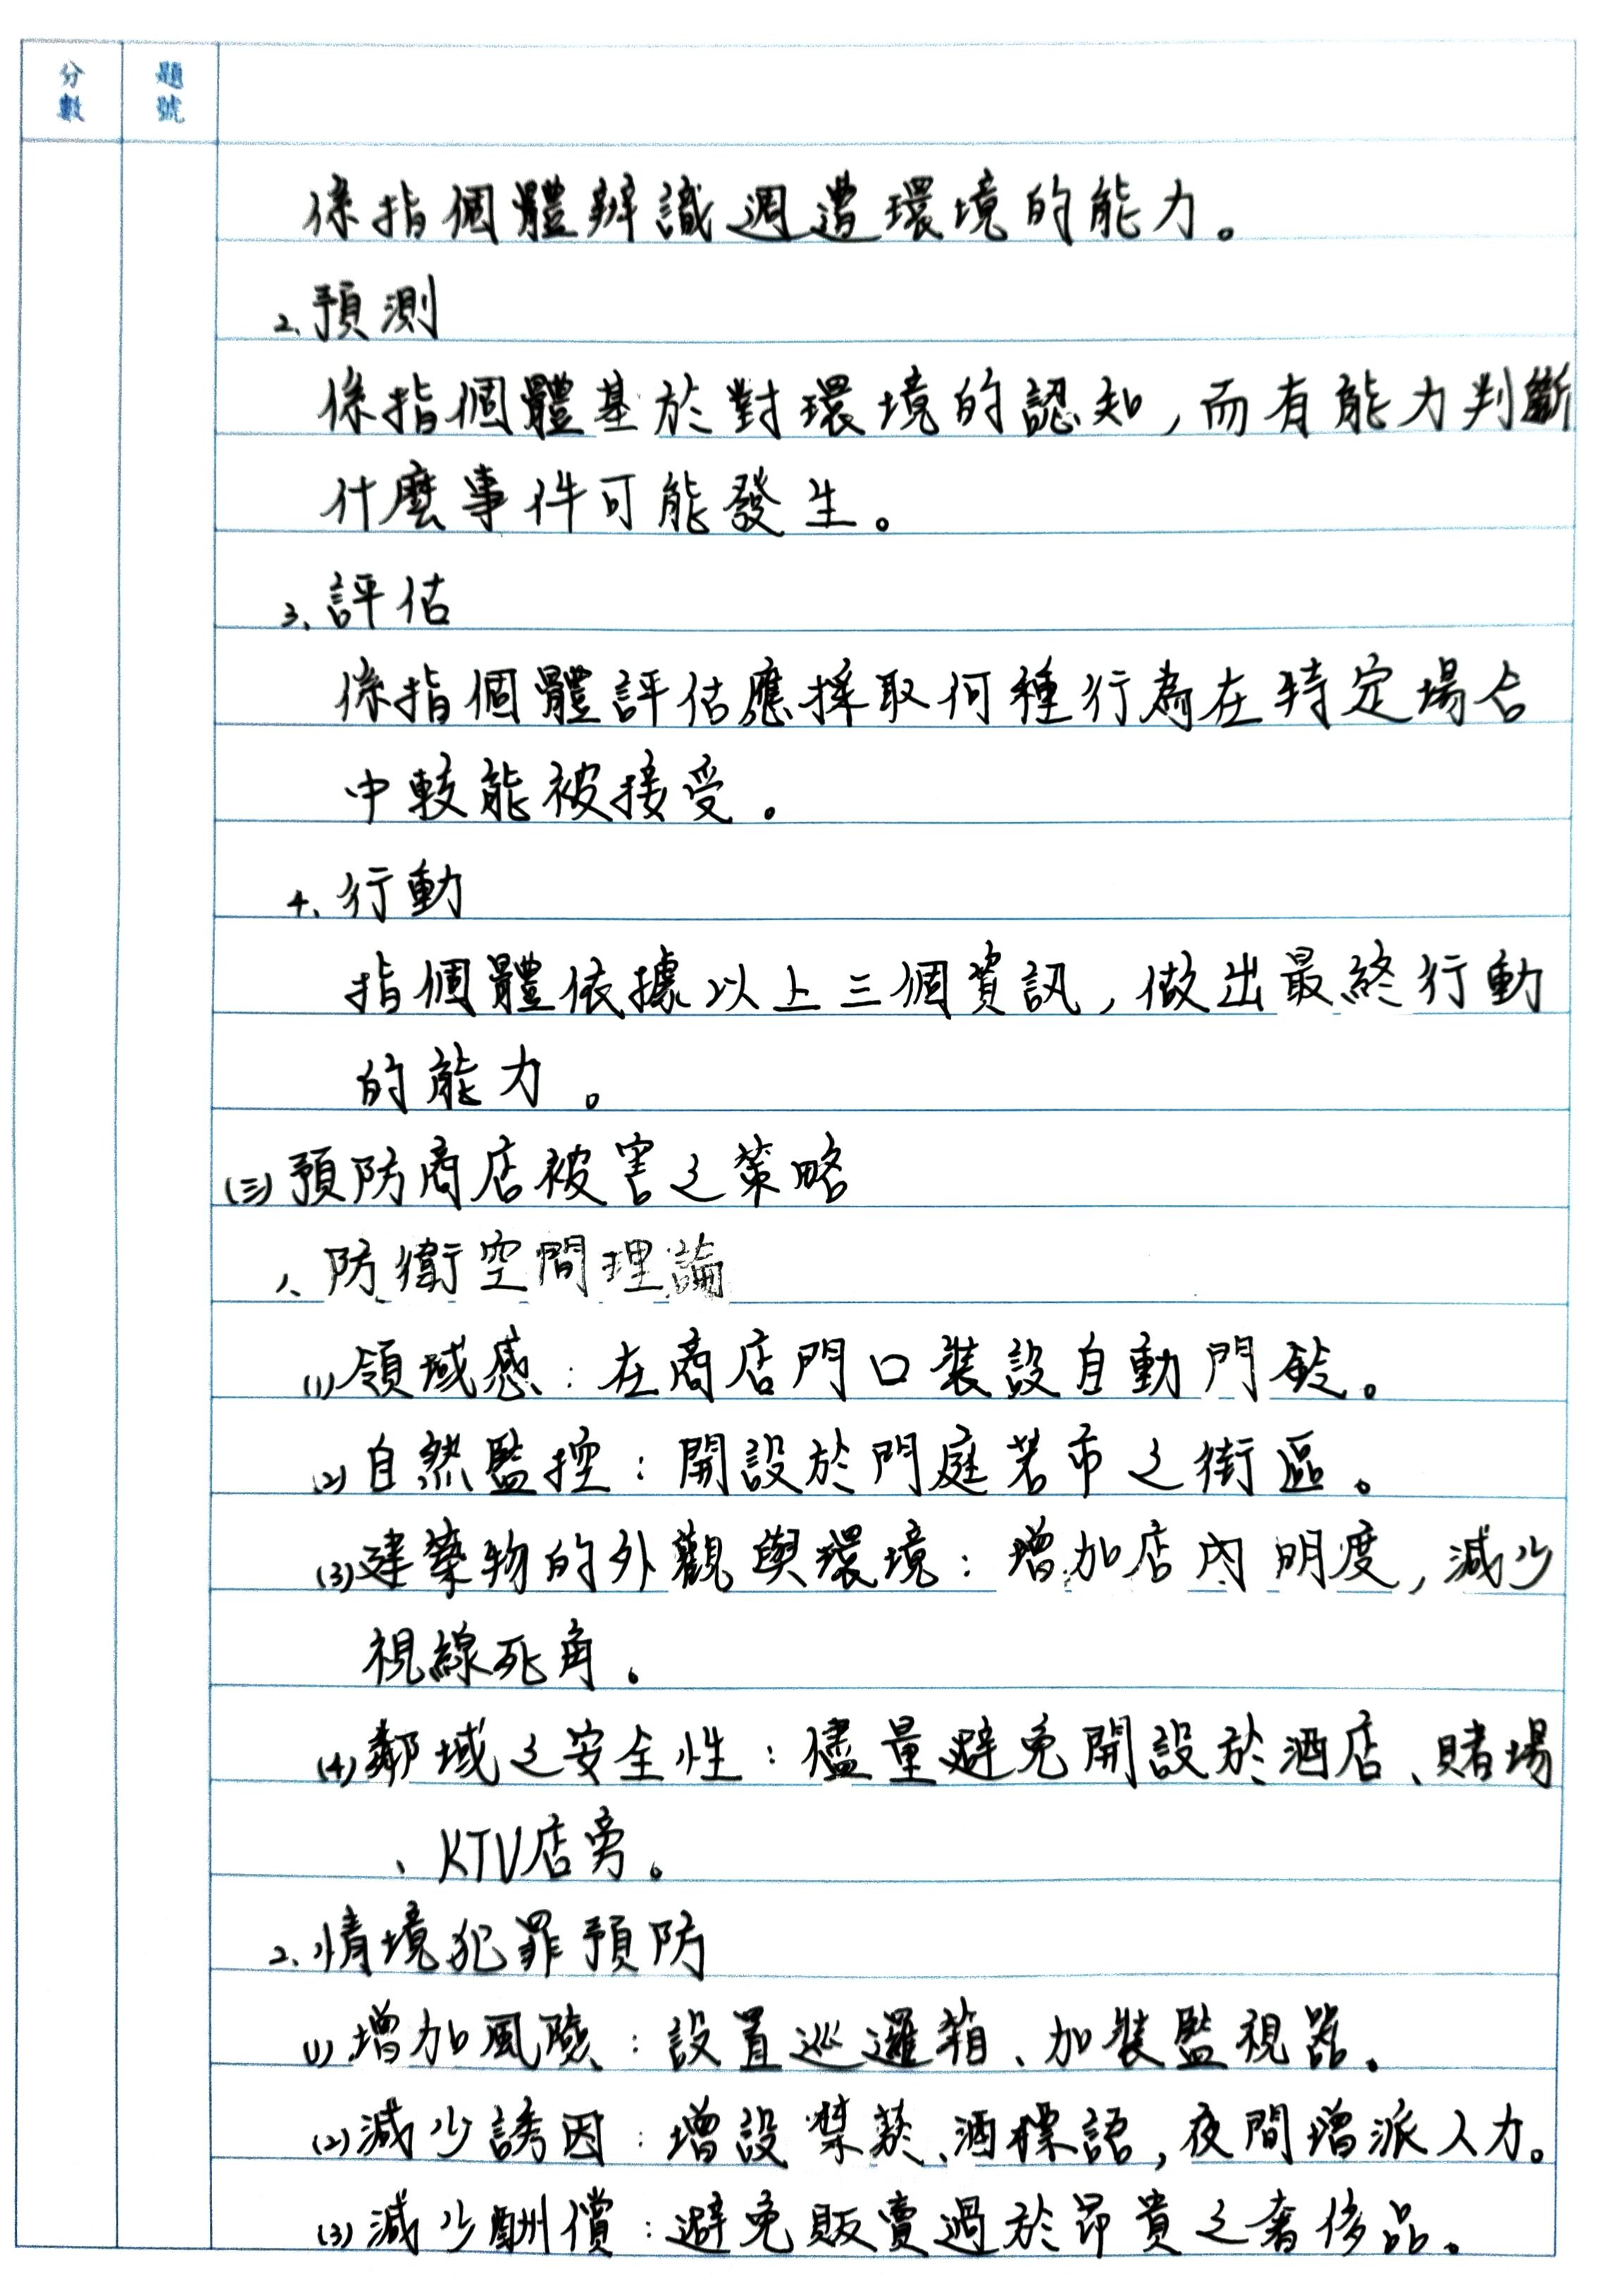 分數 題號
係指個體辨識週遭環境的能力。
2.預測
係指個體基於對環境的認知,而有能力判斷
什麼事件可能發生。
3.評估
係指個體評估應採取何種行為在特定場合
中較能被接受。
4.行動
指個體依據以上三個資訊,做出最終行動
的能力。
(三)預防商店被害之策略
1、防衛空間理論
(1)領域感:在商店門口裝設自動門鈴。
(2)自然監控:開設於門庭若市之街區。
(3)建築物的外觀與環境:增加店內明度,減少
視線死角。
(4)鄰域之安全性:儘量避免開設於酒店、賭場
、KTV店旁。
2.情境犯罪預防
(1)增加風險:設置巡邏箱、加裝監視器。
(2)減少誘因:增設禁菸、酒標語,夜間增派人力。
(3)減少酬償:避免販賣過於昂貴之奢侈品。